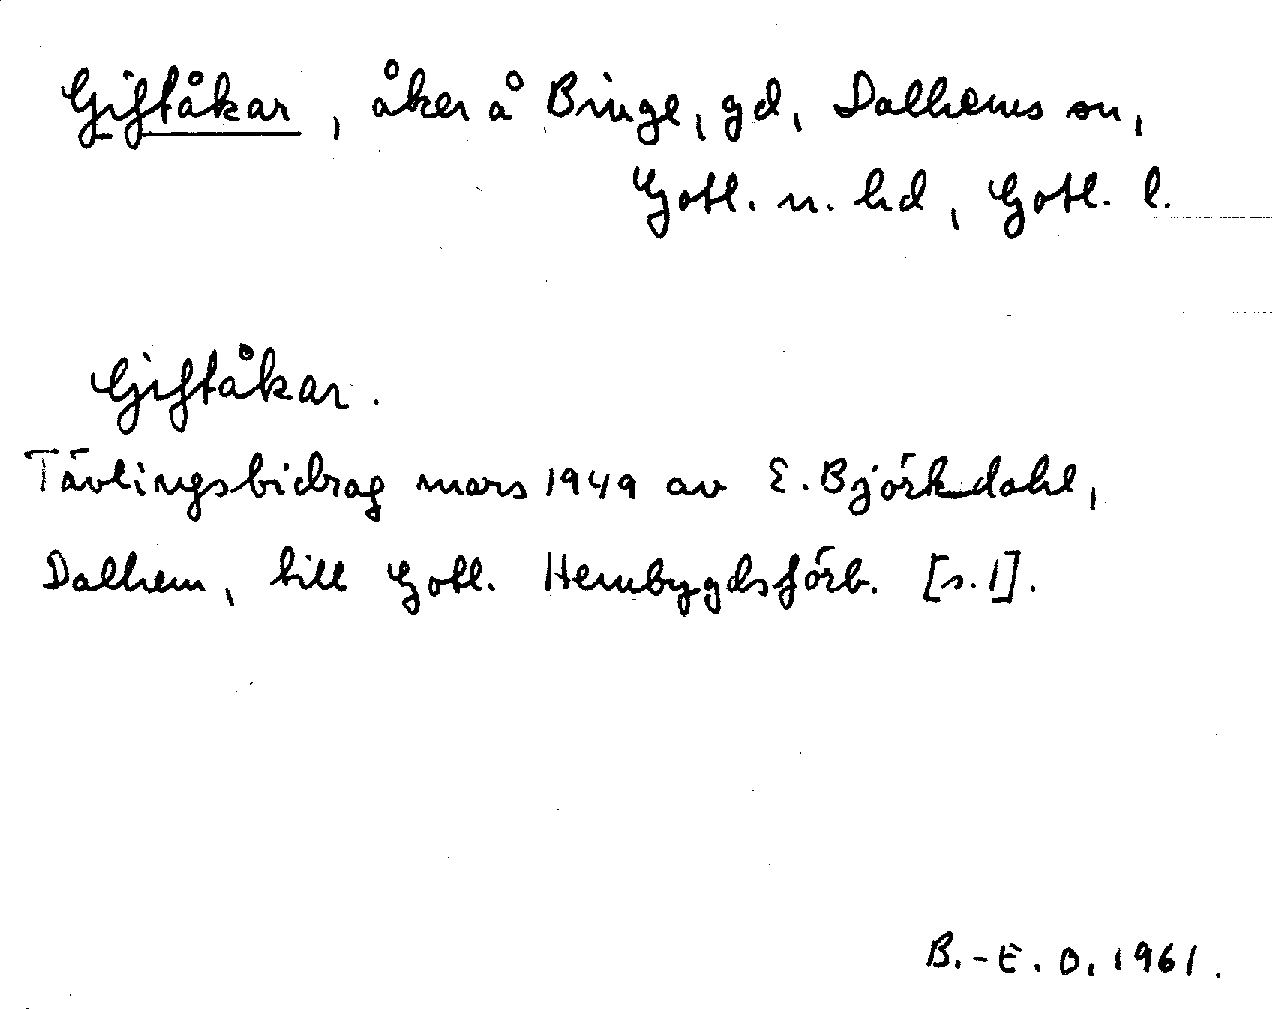 Giftåkar, åker å Binge, gd, Dalhems sn,
Gotl. n. hd, Gotl. l.
Giftåkar.
Tävlingsbidrag mars 1949 av E. Björkdahl,
Dalhem, till Gotl. Hembygdsförb. [s. 1].
B.-E. O. 1961.